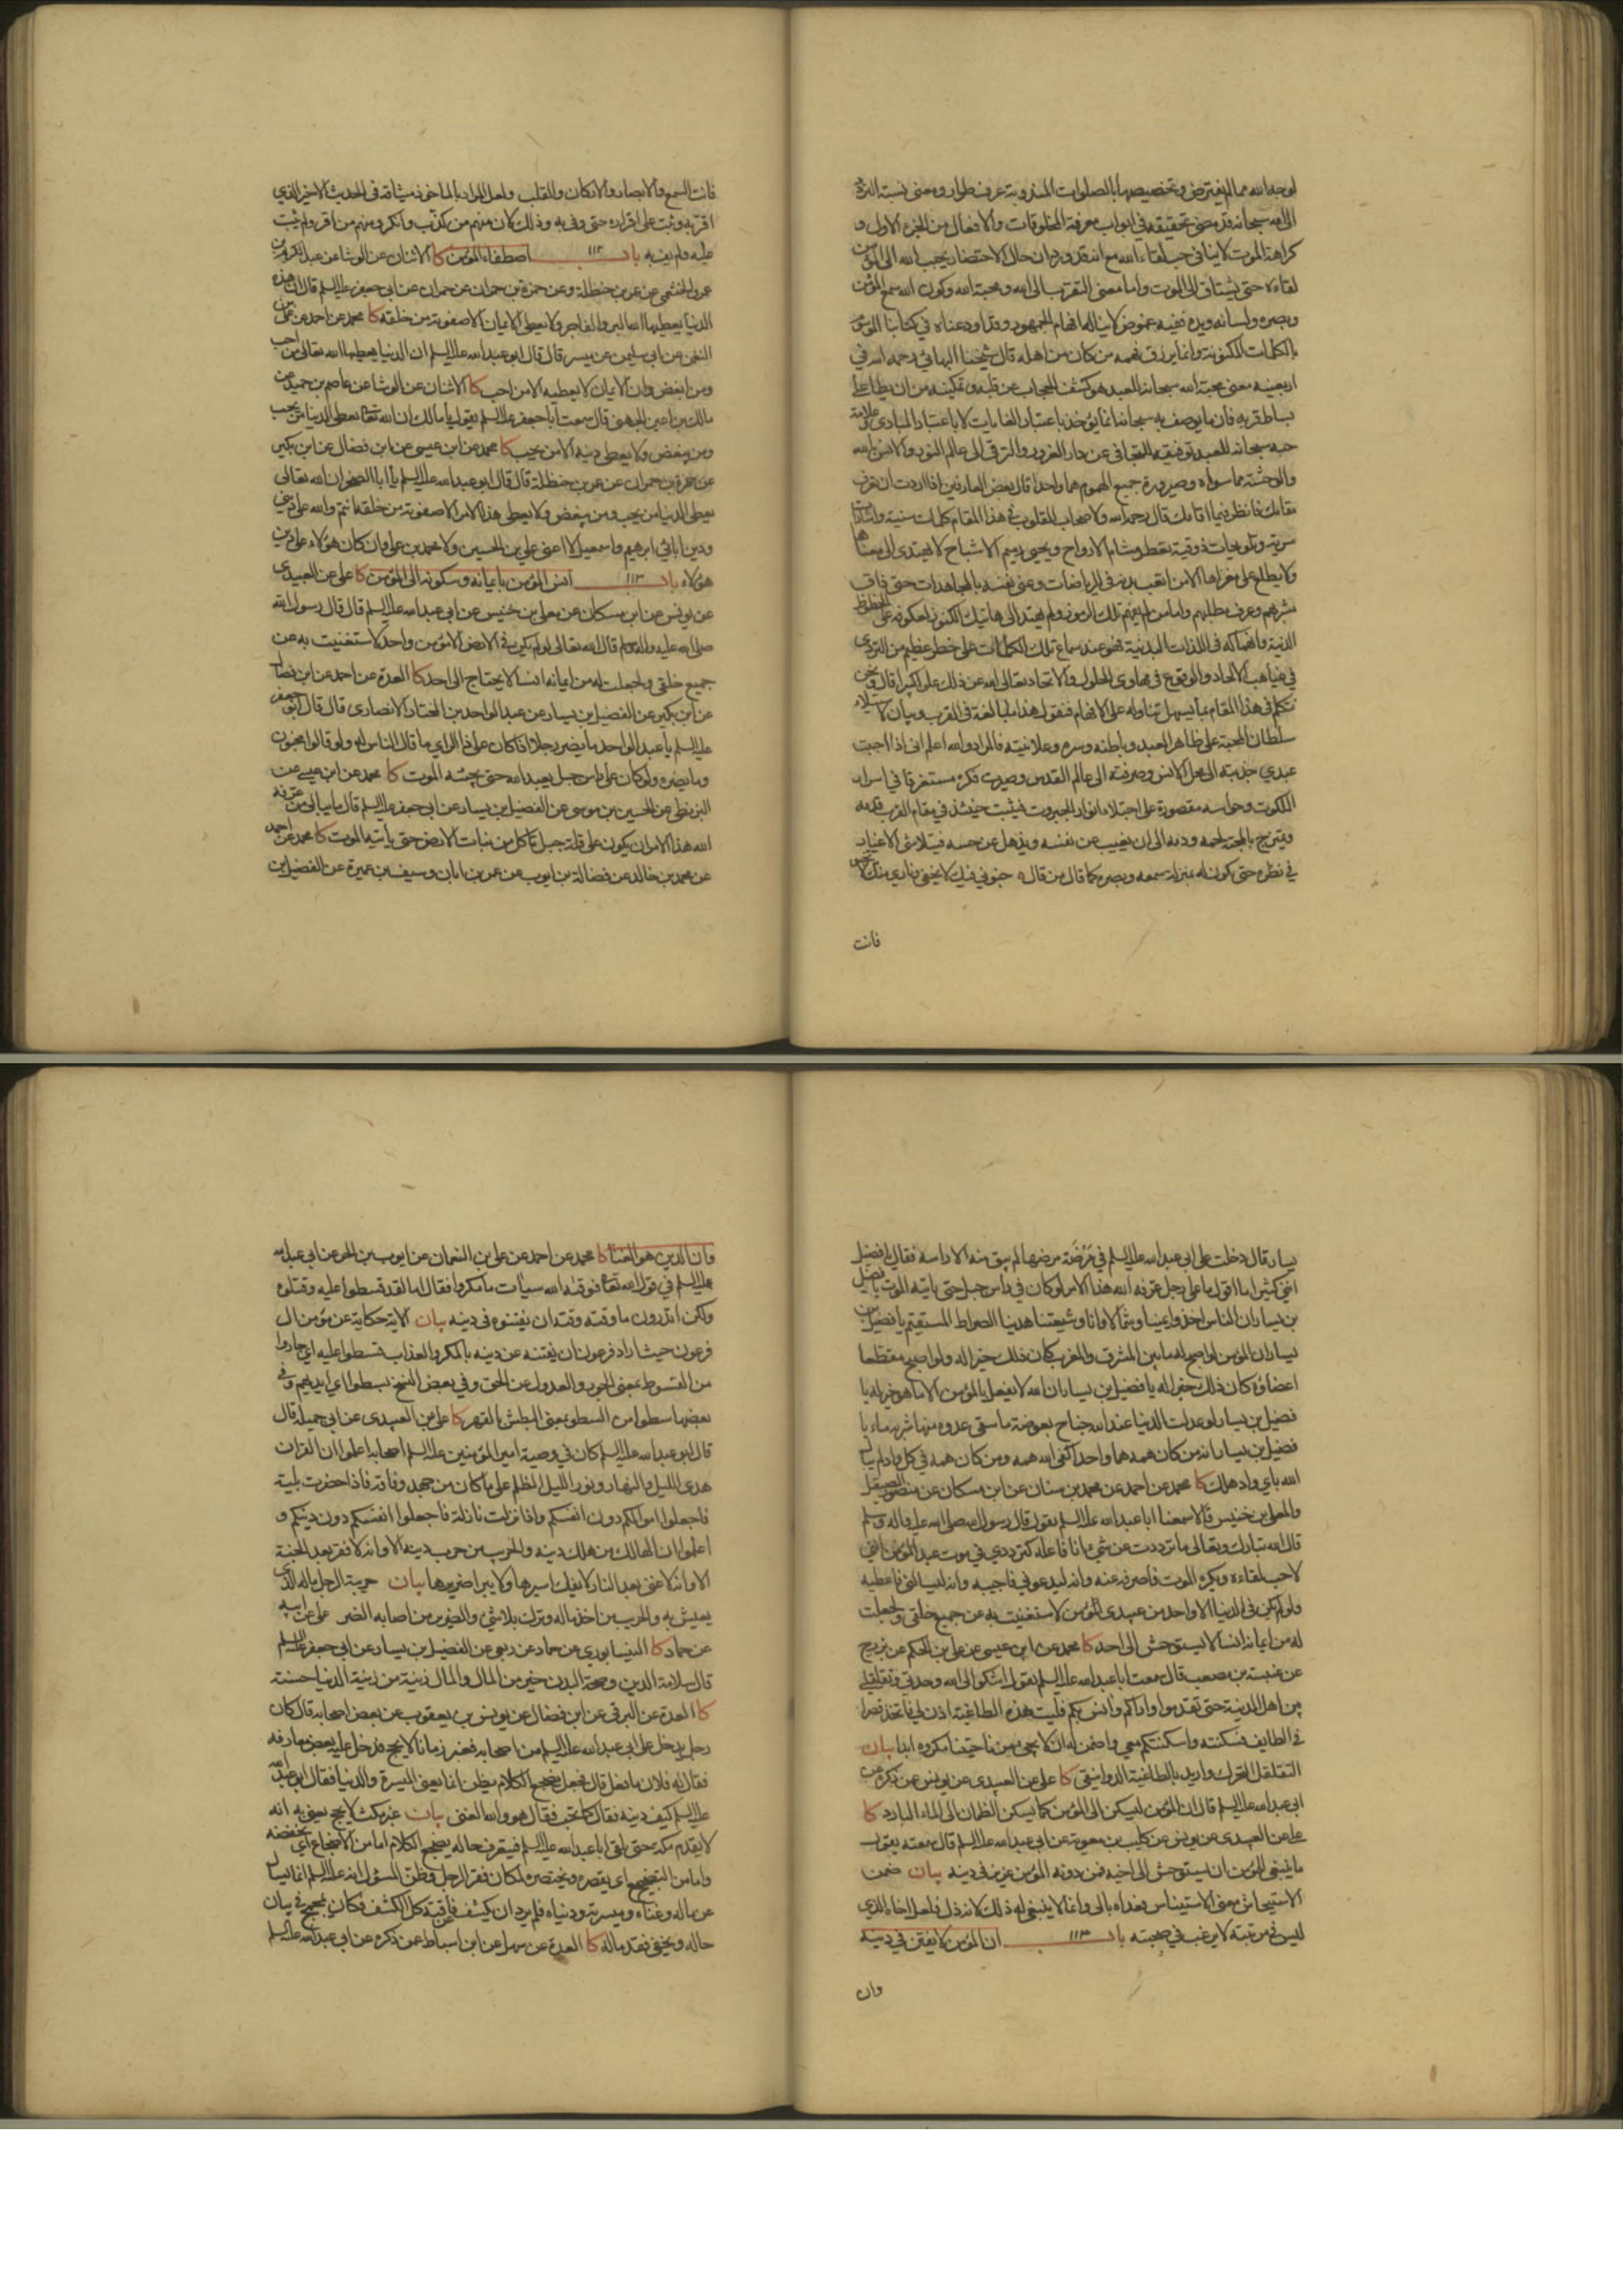 لوجه الله مما لم يفترض وتخصيصها بالصلوات المندوبة عرف طار ومعنى نسبة التردد
الى الله سبحانه قد مضى تحقيقه في ابواب معرفة المخلوقات والافعال من الجزء الاول و
كراهة الموت لا ينافي حب لقاء الله مع انه قد ورد ان حال الاحتضار يحبب الله الى المؤمن
لقاءه حتى يشتاق الى الموت واما معنى التقرب الى الله ومحبة الله وكون الله سمع المؤمن
وبصره ولسانه ويده ففيه غموض لا يناله افهام الجمهور وقد اودعناه في كتابنا الموسوم
بالكلمات المكنونة وانما يرزق فهمه من كان من اهله قال شيخنا البهائي رحمه الله في
اربعينه معنى محبة الله سبحانه للعبد هو كشف الحجاب عن قلبه وتمكينه من ان يطأ على
بساط قربه فان ما يوصف به سبحانه انما يؤخذ باعتبار الغايات لا باعتبار المبادي وعلامة
حبه سبحانه للعبد توفيقه للتجافي عن دار الغرور والترقي الى عالم النور والانس بالله
والوحشة مما سواه وصيرورة جميع الهموم هما واحدا قال بعض العارفين اذا اردت ان تعرف
مقامك فانظر فيما اقامك قال رحمه الله ولاصحاب القلوب في هذا المقام كلمات سنية واشارات
سرية وتلويحات ذوقية تعطر مشام الارواح وتحيي رميم الاشباح لا يهتدي الى معناها
ولا يطلع على مغزاها الا من اتعب بدنه في الرياضات وعنى نفسه بالمجاهدات حتى ذاق
مشربهم وعرف مطلبهم واما من لم يفهم تلك الرموز ولم يهتد الى هاتيك الكنوز لعكوفه على الحظوظ
الدنية وانهماكه في اللذات البدنية فهو عند سماع تلك الكلمات على خطر عظيم من التردي
في غياهب الالحاد والوقوع في مهاوي الحلول والاتحاد تعالى الله عن ذلك علوا كبيرا قال ونحن
نتكلم في هذا المقام بما يسهل تناوله على الافهام فنقول هذا مبالغة في القرب وبيان لاستيلاء
سلطان المحبة على ظاهر العبد وباطنه وسره وعلانيته فالمراد والله اعلم اني اذا احببت
عبدي جذبته الى محل الانس وصرفته الى عالم القدس وصيرت فكره مستغرقا في اسرار
الملكوت وحواسه مقصورة على اجتلاء انوار الجبروت فيثبت حينئذ في مقام القرب قدمه
ويمتزج بالمحبة لحمه ودمه الى ان يغيب عن نفسه ويذهل عن حسه فيتلاشى الاغيار
في نظره حتى يكون له بمنزلة سمعه وبصره كما قال من قال جنوني فيك لا يخفى وناري منك لا تخبو
فانت
فانت السمع والابصار والاركان والقلب ولعل المراد بالماخوذ ميثاقه في الحديث الاخير الذي
اقر به وثبت على اقراره حتى وفى به وذلك كان منهم من كذب وانكر ومنهم من اقر ولم يثبت
عليه ولم يف به باب ١١٢ اصطفاء المؤمن كا الاثنان عن الوشا عن عبد الكريم بن
عمرو الخثعمي عن عمر بن حنظلة وعن حمزة بن حمران عن حمران عن ابي جعفر عليه السلم قال ان هذه
الدنيا يعطيها الله البر والفاجر ولا يعطي الايمان الا صفوته من خلقه كا محمد عن احمد عن علي بن
النعمن عن ابي سليمن عن ميسر قال قال ابو عبد الله عليه السلم ان الدنيا يعطيها الله تعالى من احب
ومن ابغض وان الايمان لا يعطيه الا من احب كا الاثنان عن الوشا عن عاصم بن حميد عن
مالك بن اعين الجهني قال سمعت ابا جعفر عليه السلم يقول يا مالك ان الله تعالى يعطي الدنيا من يحب
ومن يبغض ولا يعطي دينه الا من يحب كا محمد عن ابن عيسى عن ابن فضال عن ابن بكير
عن حمزة بن حمران عن عمر بن حنظلة قال قال ابو عبد الله عليه السلم يا ابا الصخر ان الله تعالى
يعطي الدنيا من يحب ومن يبغض ولا يعطي هذا الامر الا صفوته من خلقه انتم والله على ديني
ودين ابائي ابرهيم واسمعيل لا اعني علي بن الحسين ولا محمد بن علي وان كان هؤلاء على دين
هؤلاء باب ١١٣ انس المؤمن بايمانه وسكونه الى المؤمن كا علي عن العبيدي
عن يونس عن ابن مسكان عن معلى بن خنيس عن ابي عبد الله عليه السلم قال قال رسول الله
صلى الله عليه واله وسلم قال الله تعالى لو لم يكن في الارض الا مؤمن واحد لاستغنيت به عن
جميع خلقي ولجعلت له من ايمانه انسا لا يحتاج الى احد كا العدة عن احمد عن ابن فضال
عن ابن بكير عن الفضيل بن يسار عن عبد الواحد بن المختار الانصاري قال قال ابو جعفر
عليه السلم يا عبد الواحد ما يضر رجلا اذا كان على ذا الراي ما قال الناس له ولو قالوا مجنون
وما يضره ولو كان على راس جبل يعبد الله حتى يجيئه الموت كا محمد عن ابن عيسى عن
البزنطي عن الحسين بن موسى عن الفضيل بن يسار عن ابي جعفر عليه السلم قال ما يبالي من عرفه
الله هذا الامر ان يكون على قلة جبل ياكل من نبات الارض حتى ياتيه الموت كا محمد عن احمد
عن محمد بن خالد عن فضالة بن ايوب عن عمر بن ابان وسيف بن عميرة عن الفضيل بن
يسار قال دخلت على ابي عبد الله عليه السلم في مرضة مرضها لم يبق منه الا راسه فقال يا فضيل
انني كثيرا ما اقول ما على رجل عرفه الله هذا الامر لو كان في راس جبل حتى ياتيه الموت يا فضيل
بن يسار ان الناس اخذوا يمينا وشمالا وانا وشيعتنا هدينا الصراط المستقيم يا فضيل بن
يسار ان المؤمن لو اصبح له ما بين المشرق والمغرب كان ذلك خيرا له ولو اصبح مقطعا
اعضاؤه كان ذلك خيرا له يا فضيل بن يسار ان الله لا يفعل بالمؤمن الا ما هو خير له يا
فضيل بن يسار لو عدلت الدنيا عند الله جناح بعوضة ما سقى عدوه منها شربة ماء يا
فضيل بن يسار انه من كان همه هما واحدا كفى الله همه ومن كان همه في كل واد لم يبال
الله باي واد هلك كا محمد عن احمد عن محمد بن سنان عن ابن مسكان عن منصور الصيقل
والمعلى بن خنيس قالا سمعنا ابا عبد الله عليه السلم يقول قال رسول الله صلى الله عليه واله وسلم
قال الله تبارك وتعالى ما ترددت عن شيء انا فاعله كترددي في موت عبدي المؤمن انني
لاحب لقاءه ويكره الموت فاصرفه عنه وانه ليدعوني فاجيبه وانه ليسالني فاعطيه
ولو لم يكن في الدنيا الا واحد من عبيدي المؤمن لاستغنيت به عن جميع خلقي ولجعلت
له من ايمانه انسا لا يستوحش الى احد كا محمد عن ابن عيسى عن علي بن الحكم عن بزرج
عن عنبسة بن مصعب قال سمعت ابا عبد الله عليه السلم يقول اشكو الى الله وحدتي وتقلقلي
بين اهل المدينة حتى تقدموا واراكم وانس بكم فليت هذه الطاغية اذن لي فاتخذ قصرا
في الطايف فسكنته واسكنتكم معي واضمن له ان لا يجيء من ناحيتنا مكروه ابدا بيان
التقلقل التحرك واريد بالطاغية الدوانيقي كا علي عن العبيدي عن يونس عن ذكره عن
ابي عبد الله عليه السلم قال ان المؤمن ليسكن الى المؤمن كما يسكن الظمان الى الماء البارد كا
علي عن العبيدي عن يونس عن كليب بن معوية عن ابي عبد الله عليه السلم قال سمعته يقول
ما ينبغي للمؤمن ان يستوحش الى اخيه فمن دونه المؤمن عزيز في دينه بيان ضمن
الاستيحاش معنى الاستيناس فعداه بالى وانما لا ينبغي له ذلك لانه ذل فلعل اخاه الذي
ليس في مرتبته لا يرغب في صحبته باب ١١٤ ان المؤمن لا يفتن في دينه
وان
وان الدين هو الغنا كا محمد عن احمد عن علي بن النعمان عن ايوب بن الحر عن ابي عبد الله
عليه السلم في قول الله تعالى فوقيه الله سيئات ما مكروا فقال اما لقد قسطوا عليه وقتلوه
ولكن اتدرون ما وقيه وقيه ان يفتنوه في دينه بيان الاية حكاية عن مؤمن ال
فرعون حيث اراد فرعون ان يفتنه عن دينه بالمكر والعذاب قسطوا عليه اي جاروا
من القسوط بمعنى الجور والعدول عن الحق وفي بعض النسخ بسطوا اي ايديهم وفي
بعضها سطوا من السطو بمعنى البطش بالقهر كا علي عن العبيدي عن ابي جميلة قال
قال ابو عبد الله عليه السلم كان في وصية امير المؤمنين عليه السلم اصحابه اعلموا ان القران
هدى الليل والنهار ونور الليل المظلم على ما كان من جهد وفاقة فاذا حضرت بلية
فاجعلوا اموالكم دون انفسكم واذا نزلت نازلة فاجعلوا انفسكم دون دينكم و
اعلموا ان الهالك من هلك دينه والحريب من حرب دينه الا وانه لا فقر بعد الجنة
الا وانه لا غنى بعد النار لا يفك اسيرها ولا يبرا ضريرها بيان حريبة الرجل ماله الذي
يعيش به والحريب من اخذ ماله وترك بلا شيء والضرير من اصابه الضر علي عن ابيه
عن حماد كا النيسابوري عن حماد عن ربعي عن الفضيل بن يسار عن ابي جعفر عليه السلم
قال سلامة الدين وصحة البدن خير من المال والمال زينة من زينة الدنيا حسنة
كا العدة عن البرقي عن ابن فضال عن يونس بن يعقوب عن بعض اصحابه قال كان
رجل يدخل على ابي عبد الله عليه السلم من اصحابه فغبر زمانا لا يحج فدخل عليه بعض معارفه
فقال له فلان ما فعل قال فجعل يضجع الكلام يظن انما يعني الميسرة والدنيا فقال ابو عبد الله
عليه السلم كيف دينه فقال كما تحب فقال هو والله الغنى بيان غبر مكث لا يحج يعني به انه
لا يقدم مكة حتى يلقى ابا عبد الله عليه السلم فيتعرف حاله يضجع الكلام اما من الاضجاع اي يخفضه
واما من التضجيع اي يقصره ويختصره لمكان فقر الرجل وظن المسؤل انه عليه السلم انما يسال
عن ماله وغناه وميسرته ودنياه فلم يرد ان يكشف عن فاقته كل الكشف فكان يمجمج في بيان
حاله ويخفي فقد ماله كا العدة عن سهل عن ابن اسباط عمن ذكره عن ابي عبد الله عليه السلم